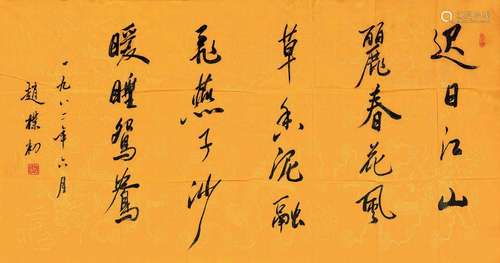 遲日江山
麗春花風
草香泥融
飛燕子沙
暖睡鴛鴦
一九八二年六月
趙樸初